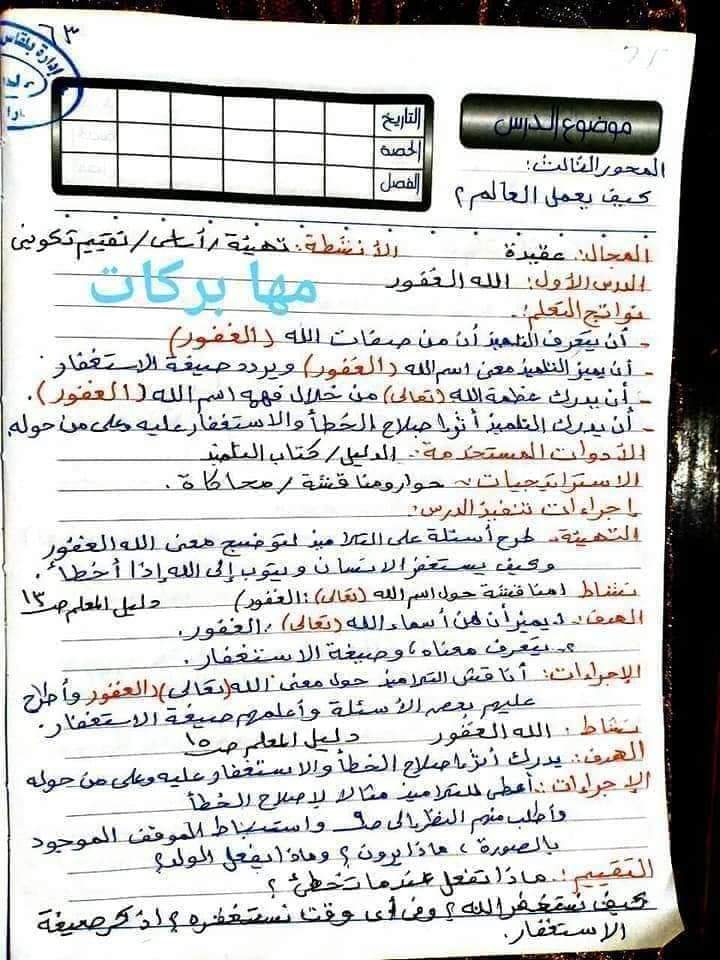 ٦٣
إدارة بلقاس
موضوع الدرس
التاريخ
الحصة
الفصل
المحور الثالث:
كيف يعمل العالم؟
المجال: عقيدة الأنشطة: تهيئة / أساسى / تقييم تكوينى
الدرس الأول: الله الغفور
مها بركات
نواتج التعلم:
- أن يتعرف التلميذ أن من صفات الله (الغفور)
- أن يميز التلميذ معنى اسم الله (الغفور) ويردد صيغة الاستغفار
- أن يدرك عظمة الله (تعالى) من خلال فهمه اسم الله (الغفور).
- أن يدرك التلميذ أثر إصلاح الخطأ والاستغفار عليه وعلى من حوله.
الأدوات المستخدمة: الدليل / كتاب التلميذ
الاستراتيجيات: حوار ومناقشة / محاكاة.
إجراءات تنفيذ الدرس:
التهيئة: طرح أسئلة على التلاميذ لتوضيح معنى الله الغفور
وكيف يستغفر الانسان ويتوب إلى الله إذا أخطأ.
نشاط ١ مناقشة حول اسم الله (تعالى): الغفور) دليل المعلم صـ ١٣
الهدف: ١- يميز أن من أسماء الله (تعالى): الغفور.
٢- يتعرف معناه، وصيغة الاستغفار.
الإجراءات: أناقش التلاميذ حول معنى الله (تعالى) (الغفور وأطرح
عليهم بعض الأسئلة وأعلمهم صيغة الاستغفار.
نشاط. الله الغفور دليل المعلم صـ ١٥
الهدف: يدرك أثر إصلاح الخطأ والاستغفار عليه وعلى من حوله
الإجراءات: أعطى للتلاميذ مثالا لإصلاح الخطأ
وأطلب منهم النظر إلى صـ ٩ واستنباط الموقف الموجود
بالصورة، ماذا يرون؟ وماذا يفعل الولد؟
التقييم: ماذا تفعل عندما تخطئ؟
كيف نستغفر الله؟ وفى أى وقت نستغفره؟ اذكر صيغة
الاستغفار.